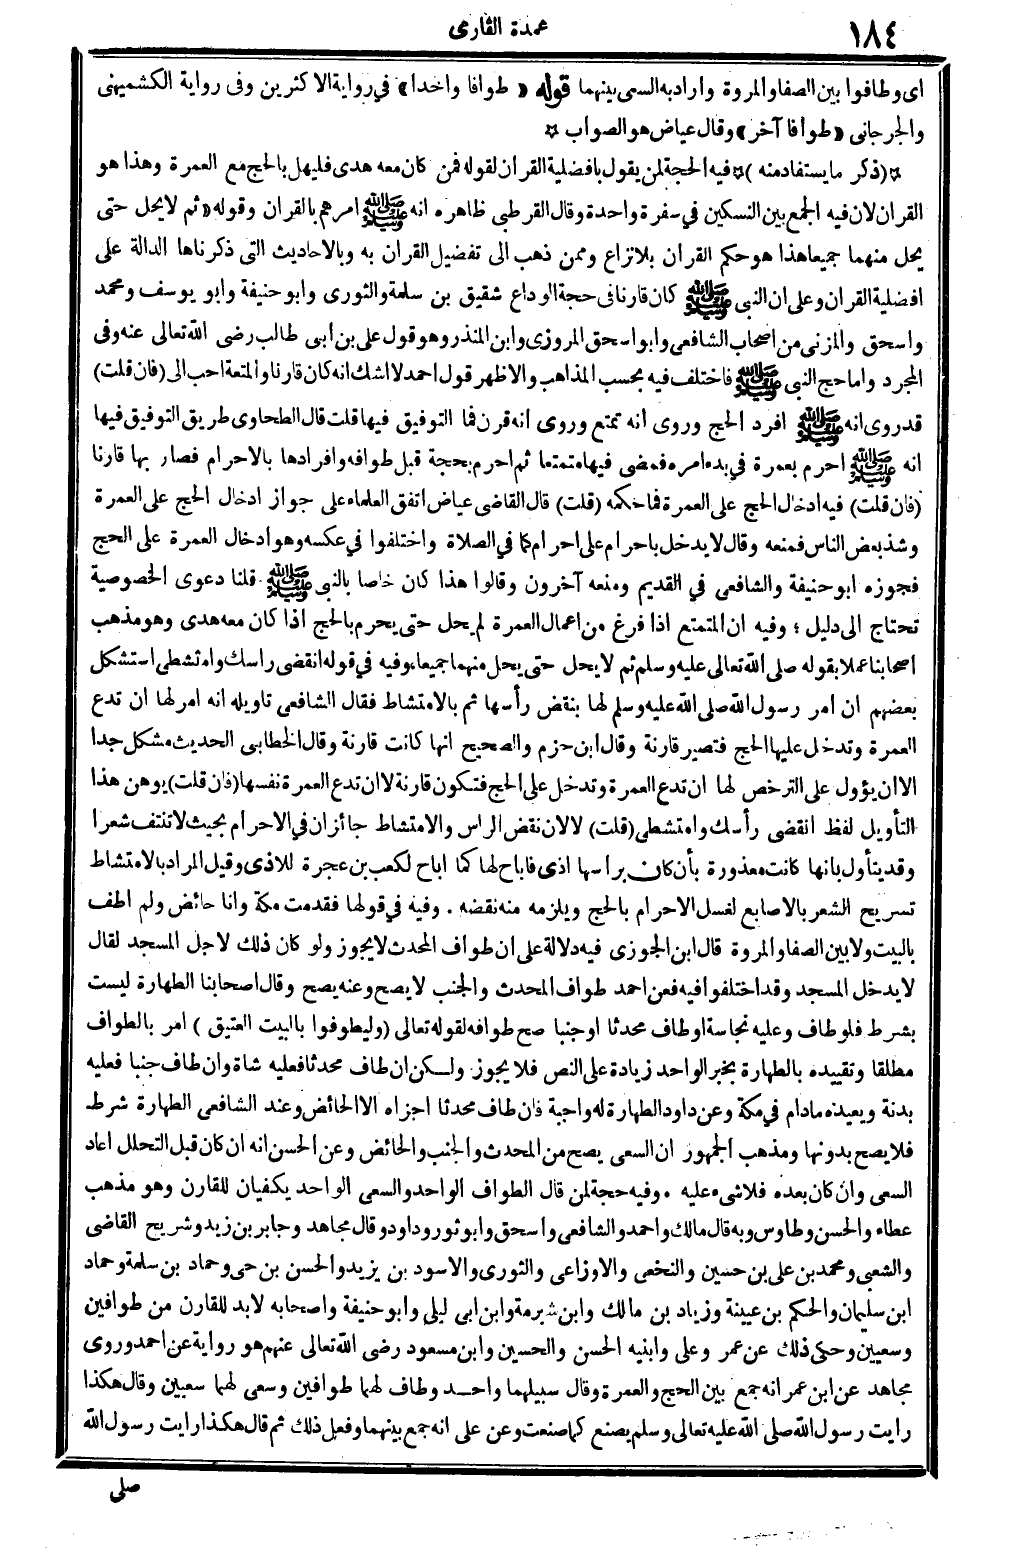 ١٨٤
عمدة القارى
اى وطافوا بين الصفا والمروة واراد به السعى بينهما قوله «طوافا واحدا» فى رواية الاكثرين وفى رواية الكشميهنى
والجرجانى «طوافا آخر» وقال عياض هو الصواب *
*(ذكر ما يستفاد منه)* فيه الحجة لمن يقول بافضلية القران لقوله فمن كان معه هدى فليهل بالحج مع العمرة وهذا هو
القران لان فيه الجمع بين النسكين فى سفرة واحدة وقال القرطبى ظاهره انه ﷺ امرهم بالقران وقوله «ثم لا يحل حتى
يحل منهما جميعا هذا هو حكم القران بلا نزاع وممن ذهب الى تفضيل القران به وبالاحاديث التى ذكرناها الدالة على
افضلية القران وعلى ان النبى ﷺ كان قارنا فى حجة الوداع شقيق بن سلمة والثورى وابو حنيفة وابو يوسف ومحمد
واسحق والمزنى من اصحاب الشافعى وابو اسحق المروزى وابن المنذر وهو قول على بن أبى طالب رضى الله تعالى عنه وفى
المجرد واما حج النبى ﷺ فاختلف فيه بحسب المذاهب والاظهر قول احمد لا اشك انه كان قارنا والمتعة احب الى (فان قلت)
قد روى انه ﷺ افرد الحج وروى أنه تمتع وروى أنه قرن فما التوفيق فيها قلت قال الطحاوى طريق التوفيق فيها
انه ﷺ احرم بعمرة فى بدء امره فمضى فيها متمتعا ثم احرم بحجة قبل طوافه وافرادها بالاحرام فصار بها قارنا
(فان قلت) فيه ادخال الحج على العمرة فما حكمه (قلت) قال القاضى عياض اتفق العلماء على جواز ادخال الحج على العمرة
وشذ بعض الناس فمنعه وقال لا يدخل باحرام على احرام كما فى الصلاة واختلفوا فى عكسه وهو ادخال العمرة على الحج
فجوزه ابو حنيفة والشافعى فى القديم ومنعه آخرون وقالوا هذا كان خاصا بالنبى ﷺ قلنا دعوى الخصوصية
تحتاج الى دليل ؛ وفيه ان المتمتع اذا فرغ من اعمال العمرة لم يحل حتى يحرم بالحج اذا كان معه هدى وهو مذهب
اصحابنا عملا بقوله صلى الله تعالى عليه وسلم ثم لا يحل حتى يحل منهما جميعا، وفيه فى قوله انقضى راسك وامتشطى استشكل
بعضهم ان امر رسول الله صلى الله عليه وسلم لها بنقض رأسها ثم بالامتشاط فقال الشافعى تاويله انه امر لها ان تدع
العمرة وتدخل عليها الحج فتصير قارنة وقال ابن حزم والصحيح انها كانت قارنة وقال الخطابى الحديث مشكل جدا
الا ان يؤول على الترخص لها ان تدع العمرة وتدخل على الحج فتكون قارنة لا ان تدع العمرة نفسها (فان قلت) يوهن هذا
التأويل لفظ انقضى رأسك وامتشطى (قلت) لا لان نقض الراس والامتشاط جائزان فى الاحرام بحيث لا تنتف شعرا
وقد يتأول بانها كانت معذورة بأن كان برأسها اذى فاباح لها كما اباح لكعب بن عجرة للاذى وقيل المراد بالامتشاط
تسريح الشعر بالاصابع لغسل الاحرام بالحج ويلزمه منه نقضه . وفيه فى قولها فقدمت مكة وانا حائض ولم اطف
بالبيت ولا بين الصفا والمروة قال ابن الجوزى فيه دلالة على ان طواف المحدث لا يجوز ولو كان ذلك لاجل المسجد لقال
لا يدخل المسجد وقد اختلفوا فيه فعن احمد طواف المحدث والجنب لا يصح وعنه يصح وقال اصحابنا الطهارة ليست
بشرط فلو طاف وعليه نجاسة او طاف محدثا او جنبا صح طوافه لقوله تعالى (وليطوفوا بالبيت العتيق) امر بالطواف
مطلقا وتقييده بالطهارة بخبر الواحد زيادة على النص فلا يجوز ولكن ان طاف محدثا فعليه شاة وان طاف جنبا فعليه
بدنة ويعيده ما دام فى مكة وعن داود الطهارة له واجبة فان طاف محدثا اجزاه الا الحائض وعند الشافعى الطهارة شرط
فلا يصح بدونها ومذهب الجمهور ان السعى يصح من المحدث والجنب والحائض وعن الحسن انه ان كان قبل التحلل اعاد
السعى وان كان بعده فلا شىء عليه . وفيه حجة لمن قال الطواف الواحد والسعى الواحد يكفيان للقارن وهو مذهب
عطاء والحسن وطاوس وبه قال مالك واحمد والشافعى واسحق وابو ثور وداود وقال مجاهد وجابر بن زيد وشريح القاضى
والشعبى ومحمد بن على بن حسين والنخعى والاوزاعى والثورى والاسود بن يزيد والحسن بن حى وحماد بن سلمة وحماد
ابن سليمان والحكم بن عيينة وزياد بن مالك وابن شبرمة وابن ابى ليلى وابو حنيفة واصحابه لابد للقارن من طوافين
وسعيين وحكى ذلك عن عمر وعلى وابنيه الحسن والحسين وابن مسعود رضى الله تعالى عنهم هو رواية عن احمد وروى
مجاهد عن ابن عمر انه جمع بين الحج والعمرة وقال سبيلهما واحد وطاف لهما طوافين وسعى لهما سعيين وقال هكذا
رايت رسول الله صلى الله عليه تعالى وسلم يصنع كما صنعت وعن على انه جمع بينهما وفعل ذلك ثم قال هكذا رايت رسول الله
صلى